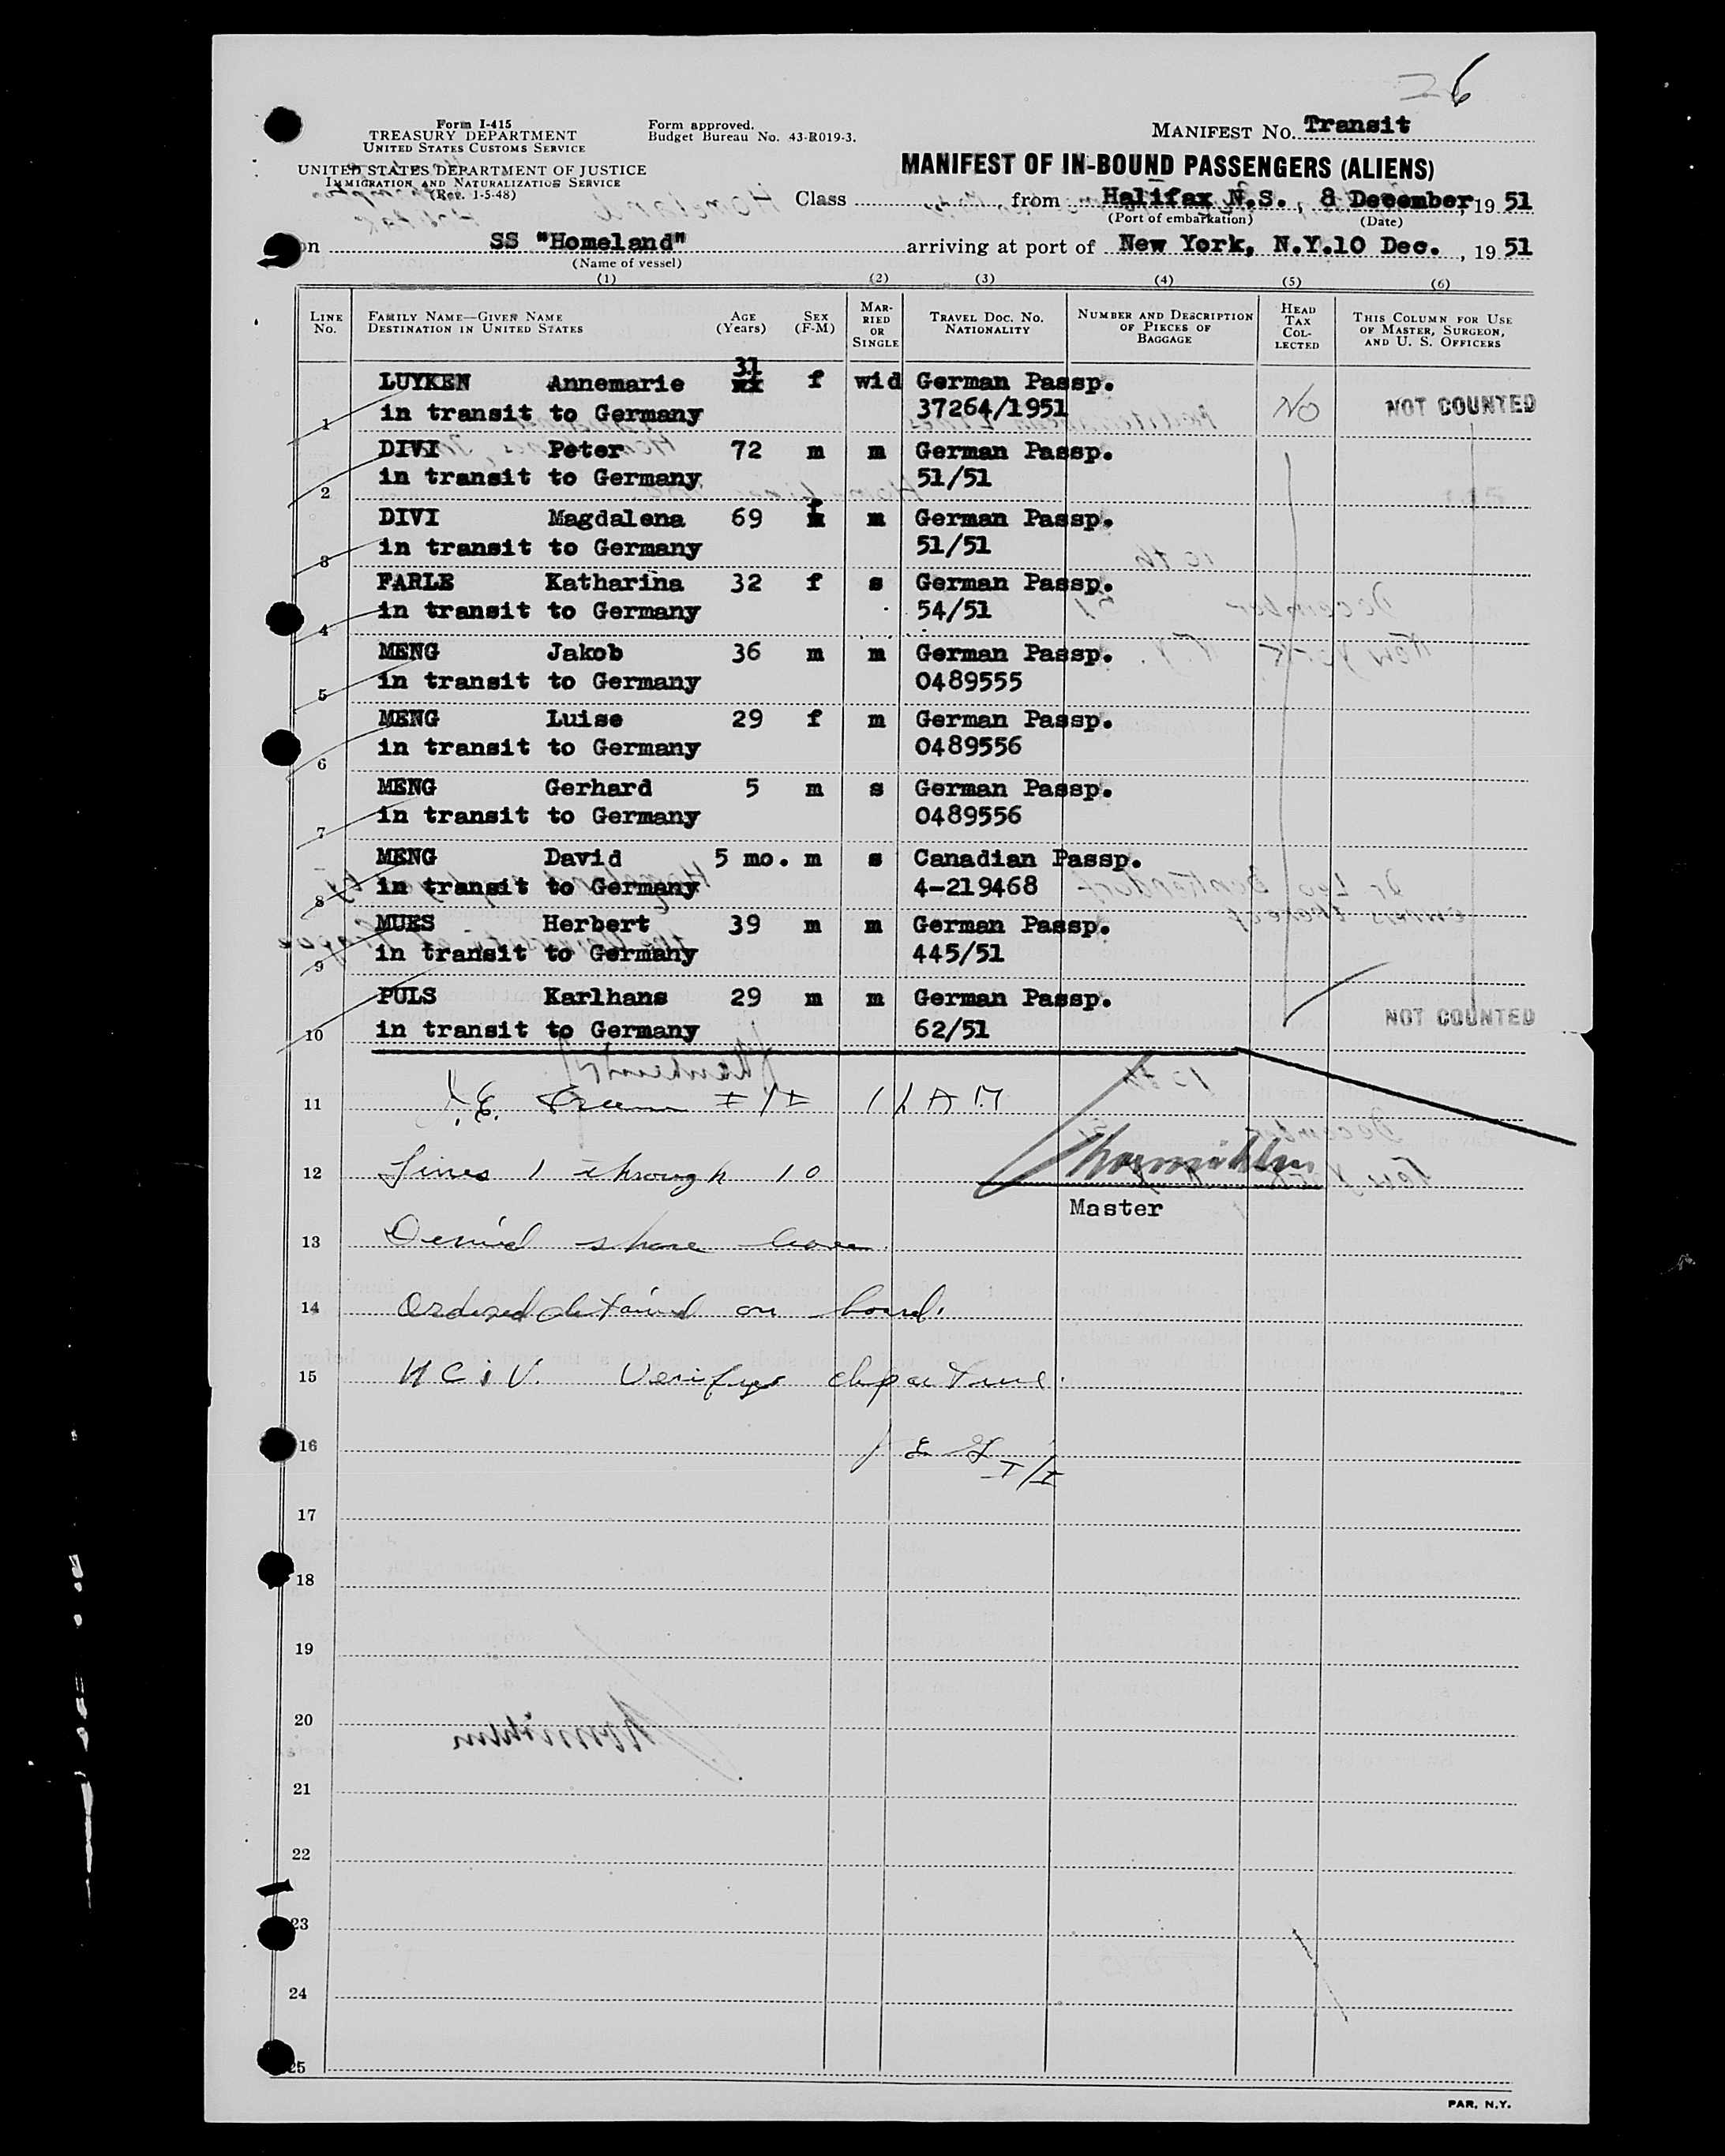 26
Form I-415
TREASURY DEPARTMENT
UNITED STATES CUSTOMS SERVICE
UNITED STATES DEPARTMENT OF JUSTICE
IMMIGRATION AND NATURALIZATION SERVICE
(Rev. 1-5-48)
Form approved.
Budget Bureau No. 43-R019-3.
MANIFEST No. Transit
MANIFEST OF IN-BOUND PASSENGERS (ALIENS)
Class , from Halifax N.S. , 8 December, 19 51
(Port of embarkation) (Date)
on SS "Homeland" arriving at port of New York, N.Y. 10 Dec. , 19 51
(Name of vessel)
(1) (2) (3) (4) (5) (6)
LINE No. FAMILY NAME—GIVEN NAME DESTINATION IN UNITED STATES AGE (Years) SEX (F-M) MARRIED OR SINGLE TRAVEL DOC. NO. NATIONALITY NUMBER AND DESCRIPTION OF PIECES OF BAGGAGE HEAD TAX COLLECTED THIS COLUMN FOR USE OF MASTER, SURGEON, AND U. S. OFFICERS
LUYKEN Annemarie 31 f wid German Passp.
1 in transit to Germany 37264/1951 No NOT COUNTED
DIVI Peter 72 m m German Passp.
2 in transit to Germany 51/51
DIVI Magdalena 69 f m German Passp.
3 in transit to Germany 51/51
FARLE Katharina 32 f s German Passp.
4 in transit to Germany 54/51
MENG Jakob 36 m m German Passp.
5 in transit to Germany 0489555
MENG Luise 29 f m German Passp.
6 in transit to Germany 0489556
MENG Gerhard 5 m s German Passp.
7 in transit to Germany 0489556
MENG David 5 mo. m s Canadian Passp.
8 in transit to Germany 4-219468
MUES Herbert 39 m m German Passp.
9 in transit to Germany 445/51
PULS Karlhans 29 m m German Passp.
10 in transit to Germany 62/51 NOT COUNTED
11 J.E. I/I
12 Lines 1 through 10
Master
13 Denied shore leave.
14 Ordered detained on board.
15 Verify departure.
16 J E I/I
17
18
19
20
21
22
23
24
25
PAR. N.Y.